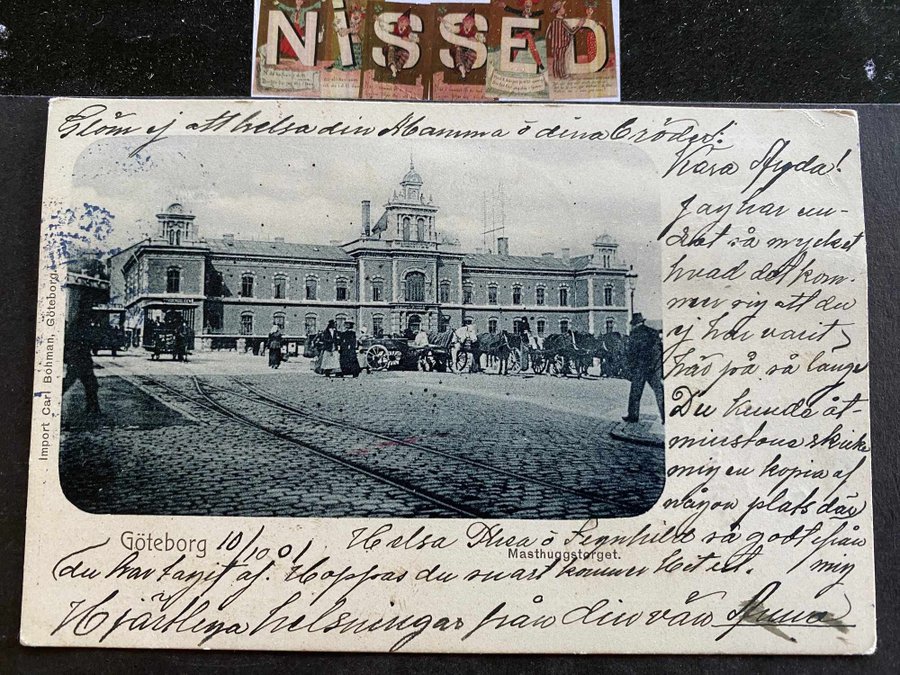 NISSED
Glöm ej att helsa din Mamma o dina bröder!
Kära Lyda!
Jag har un-
drat så mycket
hvad det kom-
mer sig att du
ej har varit
här på så länge
Du kunde åt-
minstone skicka
mig en kopia af
någon plats där
Import Carl Bohman, Göteborg
Göteborg 10/10 01
Masthuggstorget.
Helsa Thea o Gennhild så godt ifrån
du har tagit af. Hoppas du snart kommer hit ut. mig
Hjärtliga helsningar från din vän Anna